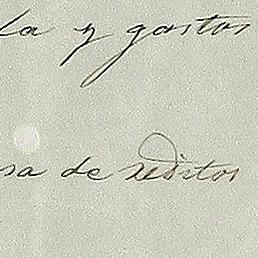 la y gastos
sa de reditos